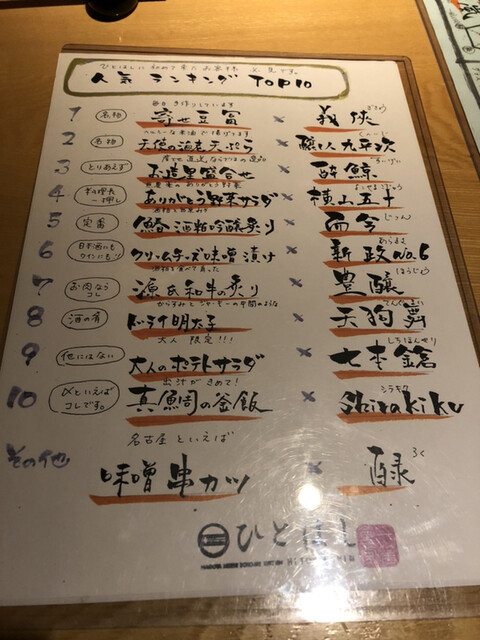 ひとはしに初めて来たお客様 必見です。
人気ランキング TOP10
毎日手作りしています
1 名物 寄せ豆冨 × 義侠 ぎきょう
ヘルシーな米油で揚げてます
2 名物 天使の海老天ぷら × 醸し人九平次 くへいじ
3 とりあえず お造里盛合せ × 酔鯨 すいげい
4 料理長一押し ありがとう野菜サラダ × 横山五十 よこやまごじゅう
5 定番 鰆酒粕吟醸炙り × 而今 じこん
6 日本酒にもワインにも クリームチーズ味噌漬け × 新政No.6 あらまさ
7 お肉なら コレ 源氏和牛の炙り × 豊醸 ほうじょう
からすみとジャーキーの中間のような
8 酒の肴 ドライ明太子 × 天狗舞 てんぐまい
大人限定!!!
9 他にはない 大人のポテトサラダ × 七本鎗 しちほんやり
出汁がきめて!
10 〆といえば コレです。 真鯛の釜飯 × Shirakiku シラキク
名古屋といえば
その他 味噌串カツ × 酉禄 ろく
ひとはし